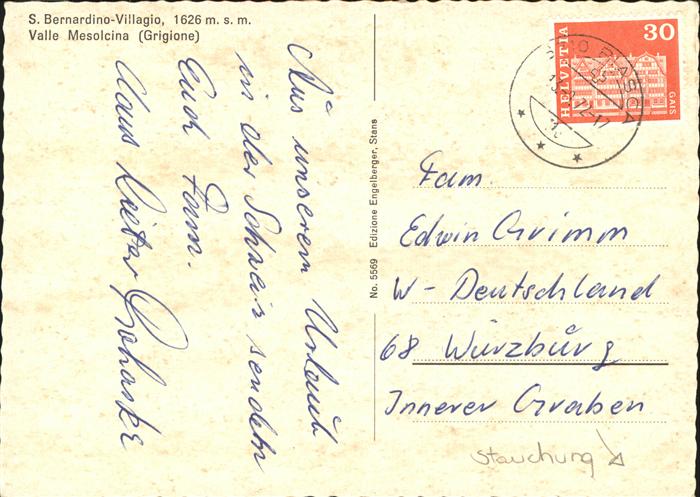 S. Bernardino-Villagio, 1626 m. s. m.
Valle Mesolcina (Grigione)
Aus unserem Urlaub
in der Schweiz senden
Euch Fam.
Claus Dieter Prohaska
No. 5569 Edizione Engelberger, Stans
HELVETIA
30
GAIS
Fam.
Edwin Grimm
W - Deutschland
68 Würzburg
Innerer Graben
Stauchung